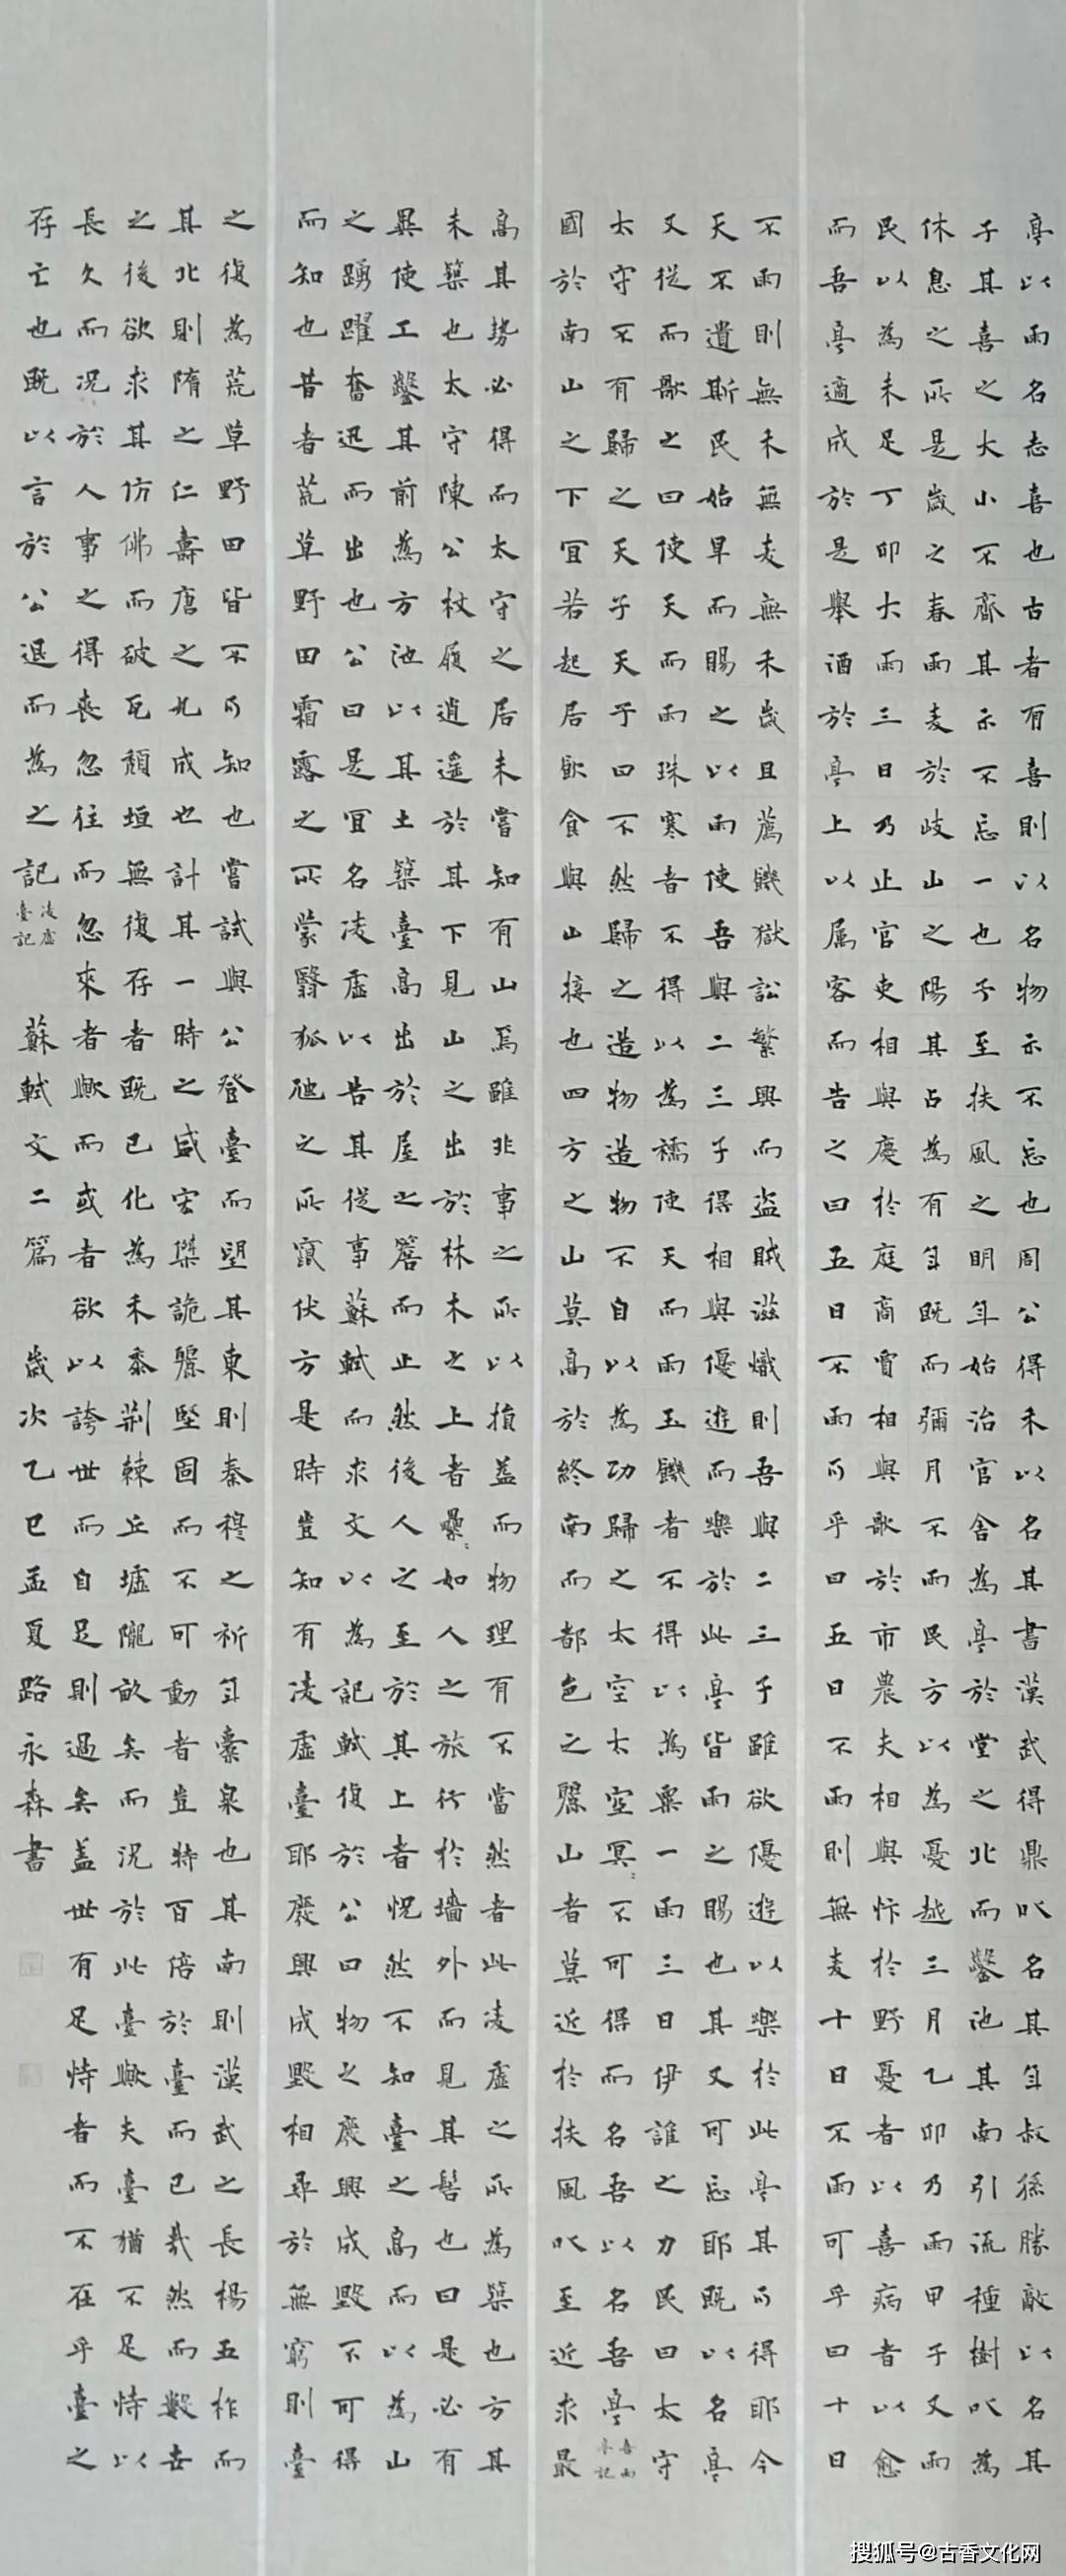 亭以雨名志喜也古者有喜則以名物示不忘也周公得禾以名其書漢武得鼎以名其年叔孫勝敵以名其
子其喜之大小不齊其示不忘一也予至扶風之明年始治官舍為亭於堂之北而鑿池其南引流種樹以為
休息之所是歲之春雨麦於岐山之陽其占為有年既而彌月不雨民方以為憂越三月乙卯乃雨甲子又雨
民以為未足丁卯大雨三日乃止官吏相與慶於庭商賈相與歌於市農夫相與忭於野憂者以喜病者以愈
而吾亭適成於是舉酒於亭上以属客而告之曰五日不雨可乎曰五日不雨則無麦十日不雨可乎曰十日
不雨則無禾無麦無禾歲且薦饑獄訟繁興而盜賊滋熾則吾與二三子雖欲優遊以樂於此亭其可得耶今
天不遺斯民始旱而賜之以雨使吾與二三子得相與優遊而樂於此亭皆雨之賜也其又可忘耶既以名亭
又從而歌之曰使天而雨珠寒者不得以為襦使天而雨玉饑者不得以為粟一雨三日伊誰之力民曰太守
太守不有歸之天子天子曰不然歸之造物造物不自以為功歸之太空太空冥〻不可得而名吾以名吾亭
喜雨
亭記
國於南山之下宜若起居飲食與山接也四方之山莫高於終南而都邑之麗山者莫近於扶風以至近求最
高其勢必得而太守之居未嘗知有山焉雖非事之所以損益而物理有不當然者此凌虛之所為築也方其
未築也太守陳公杖履逍遙於其下見山之出於林木之上者纍〻如人之旅行於墻外而見其髻也曰是必有
異使工鑿其前為方池以其土築臺高出於屋之簷而止然後人之至於其上者怳然不知臺之高而以為山
之踴躍奮迅而出也公曰是宜名凌虛以告其從事蘇軾而求文以為記軾復於公曰物之廢興成毀不可得
而知也昔者荒草野田霜露之所蒙翳狐虺之所竄伏方是時豈知有凌虛臺耶廢興成毀相尋於無窮則臺
之復為荒草野田皆不可知也嘗試與公登臺而望其東則秦穆之祈年橐泉也其南則漢武之長楊五柞而
其北則隋之仁壽唐之九成也計其一時之盛宏傑詭麗堅固而不可動者豈特百倍於臺而已哉然而數世
之後欲求其仿佛而破瓦頹垣無復存者既已化為禾黍荆棘丘墟隴畝矣而況於此臺歟夫臺猶不足恃以
長久而況於人事之得喪忽往而忽來者歟而或者欲以誇世而自足則過矣蓋世有足恃者而不在乎臺之
存亡也既以言於公退而為之記
凌虛
臺記
蘇軾文二篇 歲次乙巳孟夏路永森書
搜狐号@古香文化网